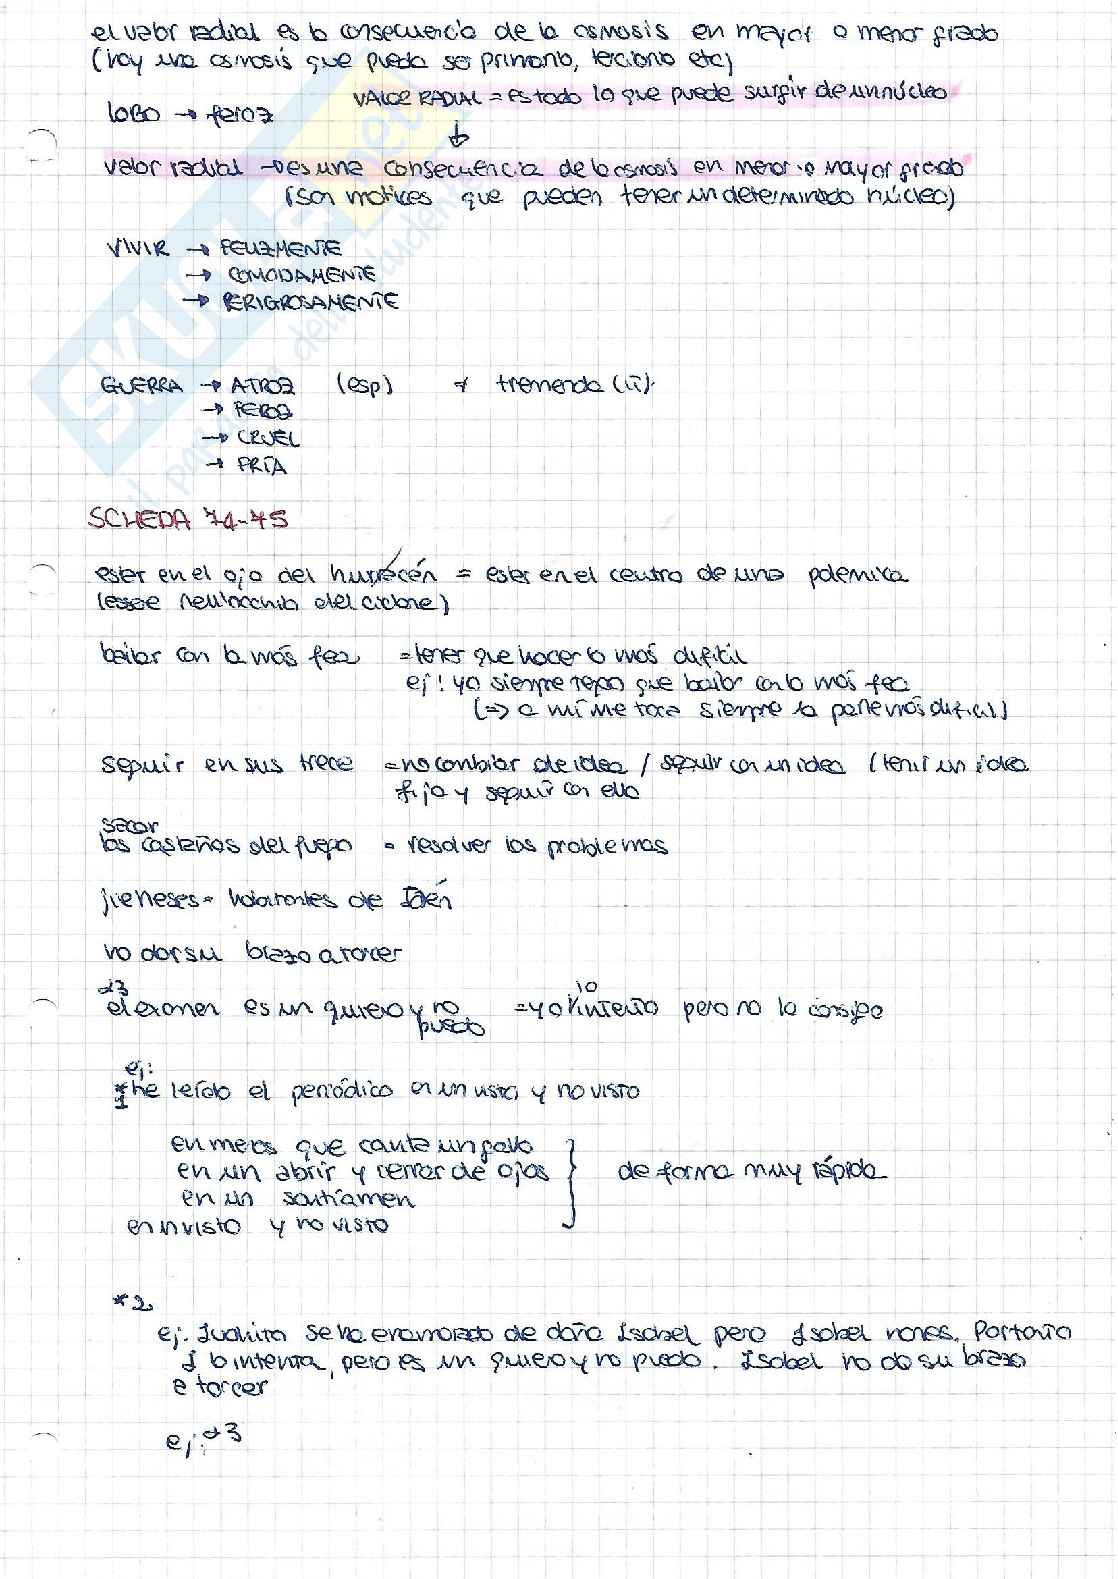 el valor radial es la consecuencia de la osmosis en mayor o menor grado
(hay una osmosis que pueda ser primario, terciario etc)
VALOR RADIAL = es todo lo que puede surgir de un núcleo
LOBO → feroz
valor radial → es una consecuencia de la osmosis en menor o mayor grado
(son matices que pueden tener un determinado núcleo)
VIVIR → FELIZMENTE
→ COMODAMENTE
→ PERIGROSAMENTE
GUERRA → ATROZ (esp) ≠ tremenda (it).
→ FEROZ
→ CRUEL
→ FRÍA
SCHEDA 74-75
estar en el ojo del huracán = estar en el centro de una polemica
(essere nell'occhio del ciclone)
bailar con la más fea = tener que hacer lo más dificil
ej: yo siempre tengo que bailar con la más fea
(=> a mí me toca siempre la parte más dificil)
seguir en sus trece = no cambiar de idea / seguir con un idea (tenir un idea
fija y seguir con ella
sacar
las castañas del fuego = resolver los problemas
jieneses = habitantes de Jaén
no dar su brazo a torcer
*3
el examen es un quiero y no puedo = yo lo intento pero no lo consigo
ej:
*1 he leído el periódico en un visto y no visto
en menos que cante un gallo
en un abrir y cerrar de ojos } de forma muy rápida
en un santíamen
en un visto y no visto
*2
ej: Juanito se ha enamorado de doña Isabel pero Isabel nones. Portonio
lo intenta, pero es un quiero y no puedo. Isabel no da su brazo
a torcer
ej: *3